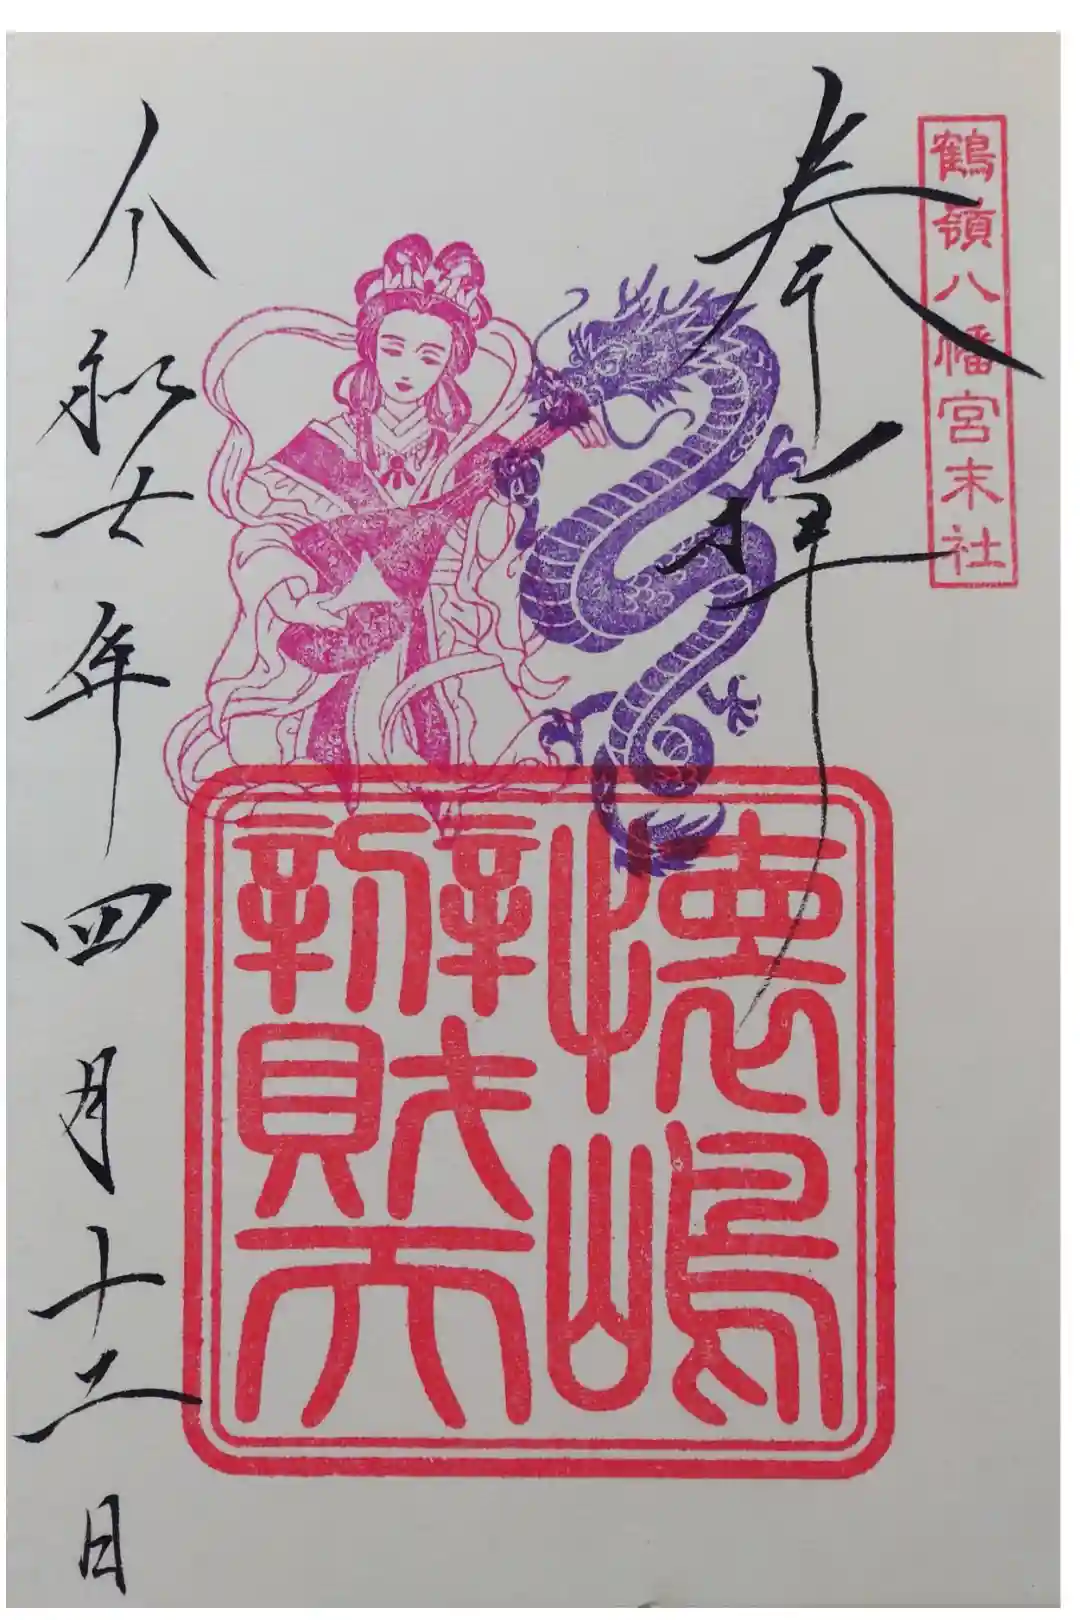 鶴嶺八幡宮末社
奉拝
懐嶋
辨財天
令和六年四月十二日